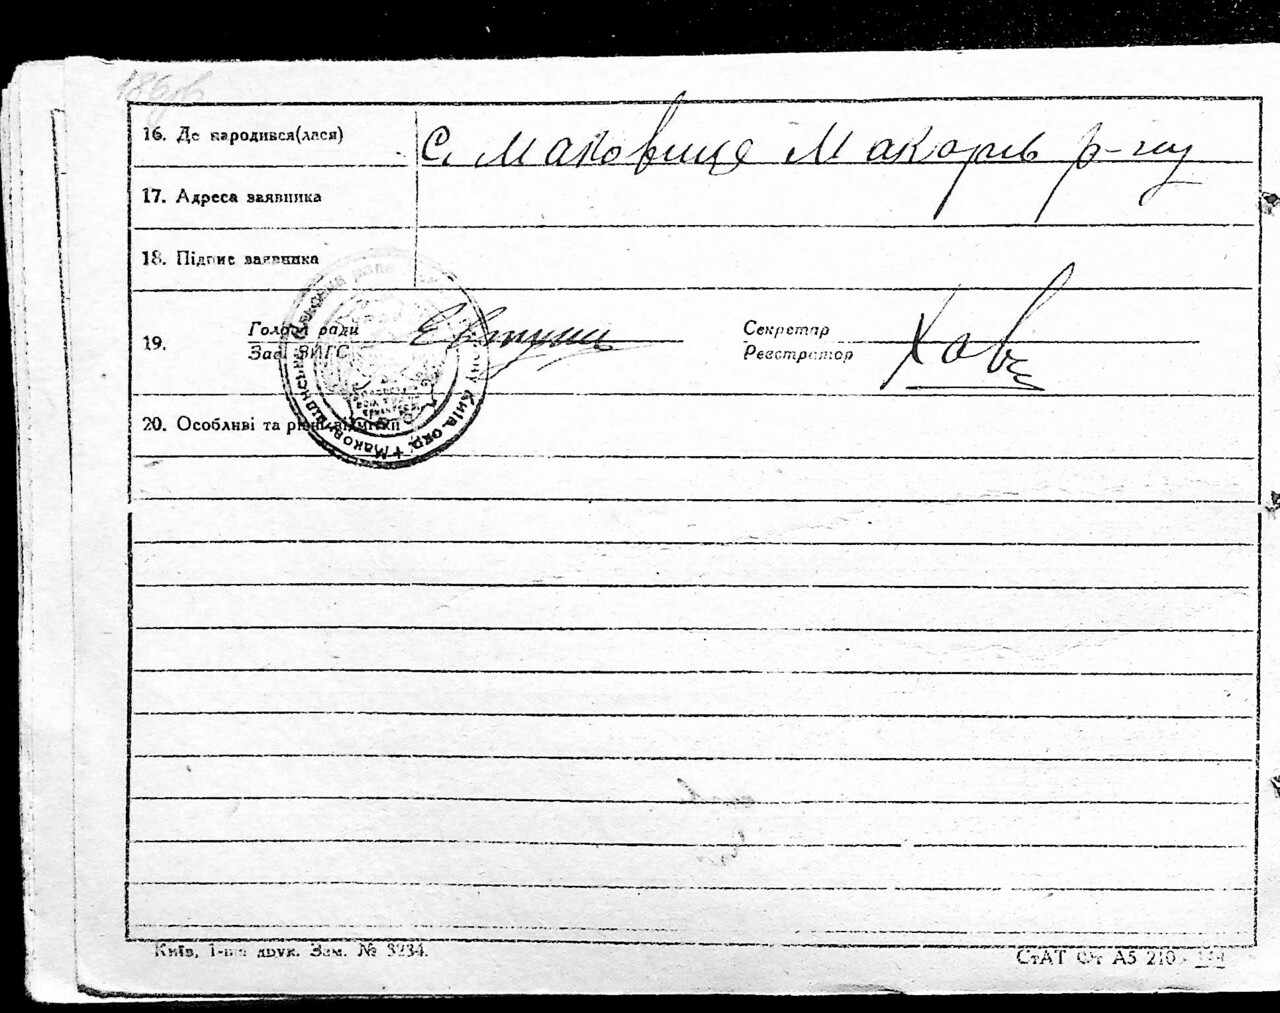 16. Де народився(лася)
с. Маковище Макарів р-ну
17. Адреса заявника
18. Підпис заявника
19.
Голова ради
Зав. ЗАГС
Секретар
Реєстратор
20. Особливі та різні відмітки
Київ, 1-ша друк. Зам. № 3234.
СтАТ Ф А5 210